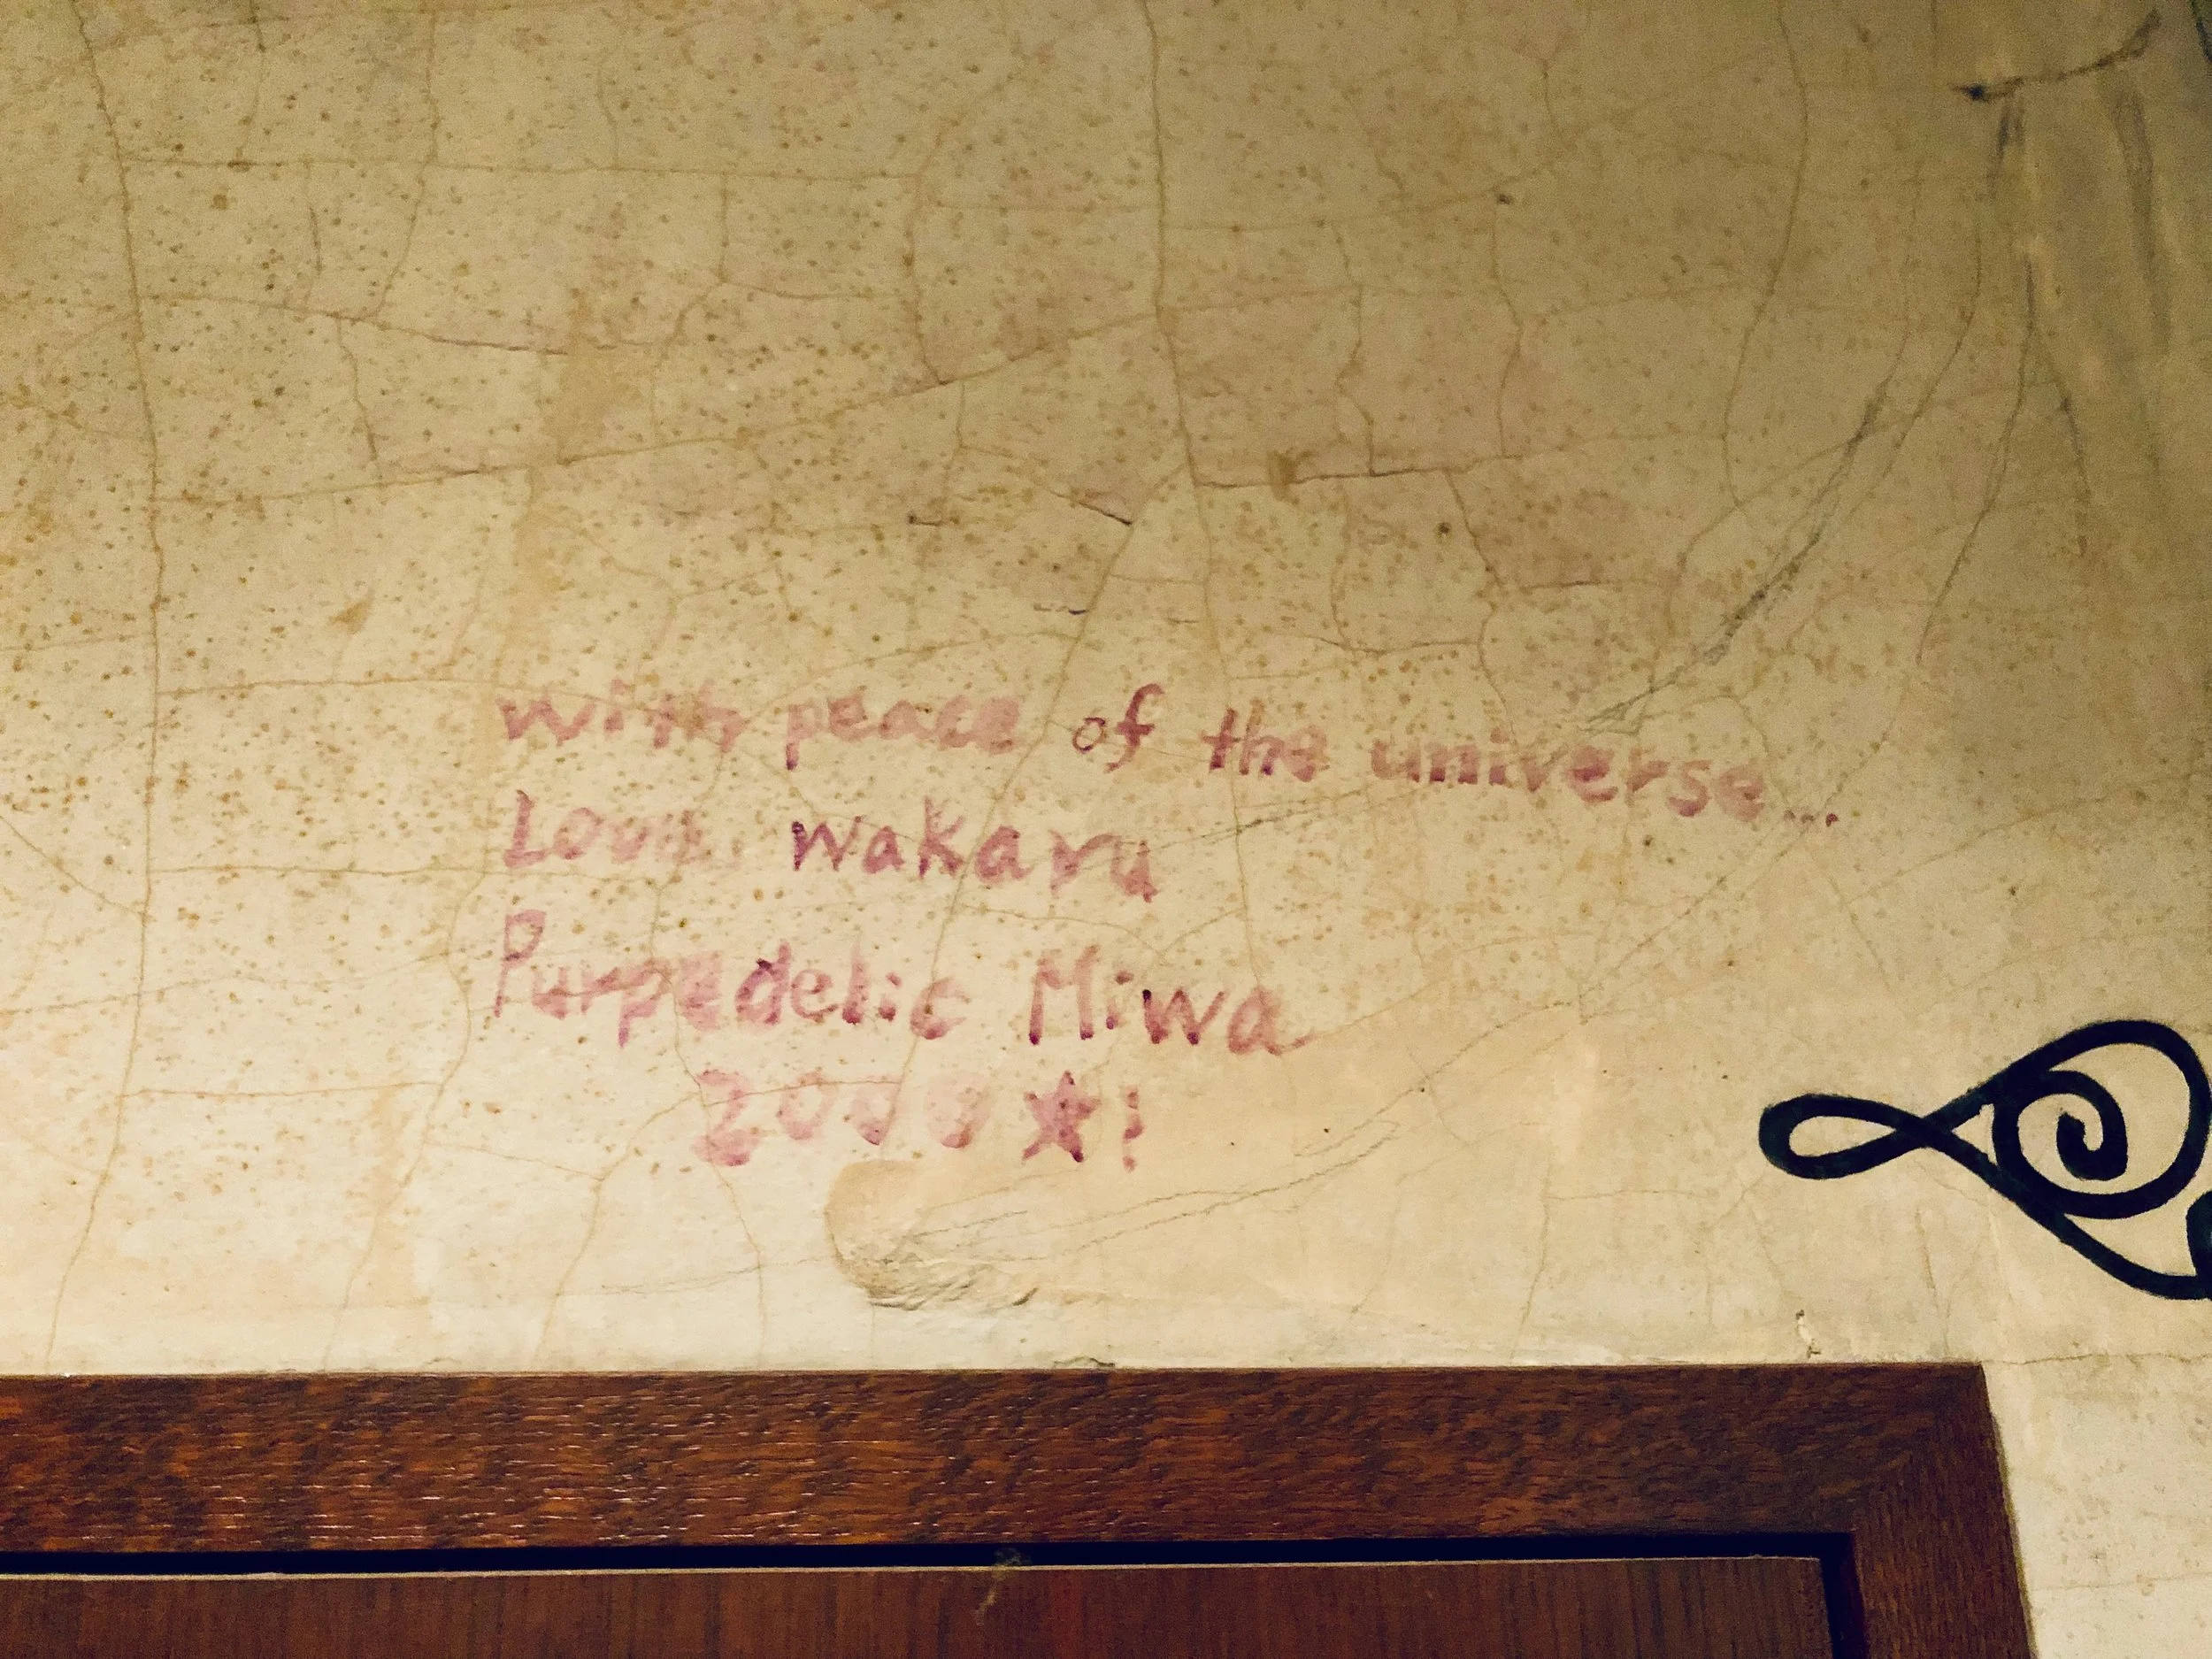 with peace of the universe...
Love, wakaru
Purpedelic Miwa
2008★!